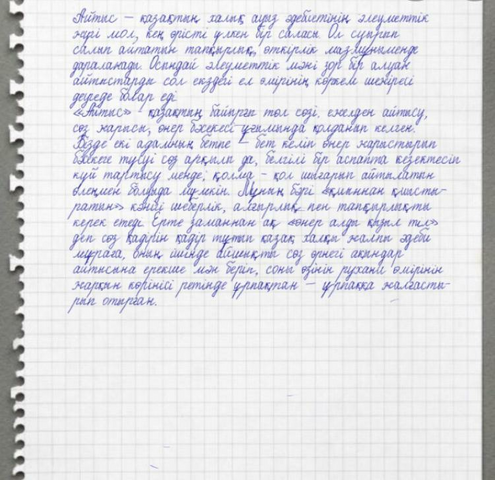 Айтыс – қазақтың халық ауыз әдебиетінің әлеуметтік
жүгі мол, кең өрісті үлкен бір саласы. Ол суырып
салып айтатын тапқырлық, өткірлік мазмұныменде
дараланады. Осындай әлеуметтік мәні зор бір алуан
айтыстарды сол кездегі ел өмірінің көркем шежіресі
деуеде болар еді.
«Айтыс» - қазақтың байырғы төл сөзі, ежелден айтысу,
сөз жарысы, өнер бәсекесі ұғымында қолданып келген.
Бізде екі адамның бетпе – бет келіп өнер жарыстырып
бәсекеге түсуі сөз арқылы да, белгілі бір аспапта кезектесіп
күй тартысу менде, қолма - қол шығарып айтылатын
өлеңмен болуыда мүмкін. Мұның бәрі «қиыннан қиысты-
ратын» кәнігі шеберлік, алғырлық пен тапқырлықты
керек етеді. Ерте заманнан ақ «өнер алды қызыл тіл»
деп сөз қадірін қадір тұтып қазақ халқы жалпы әдеби
мұраға, оның ішінде айшықты сөз өрнегі ақындар
айтысына ерекше мән беріп, соны өзінің рухани өмірінің
жарқын көрінісі ретінде ұрпақтан – ұрпаққа жалғасты-
рып отырған.